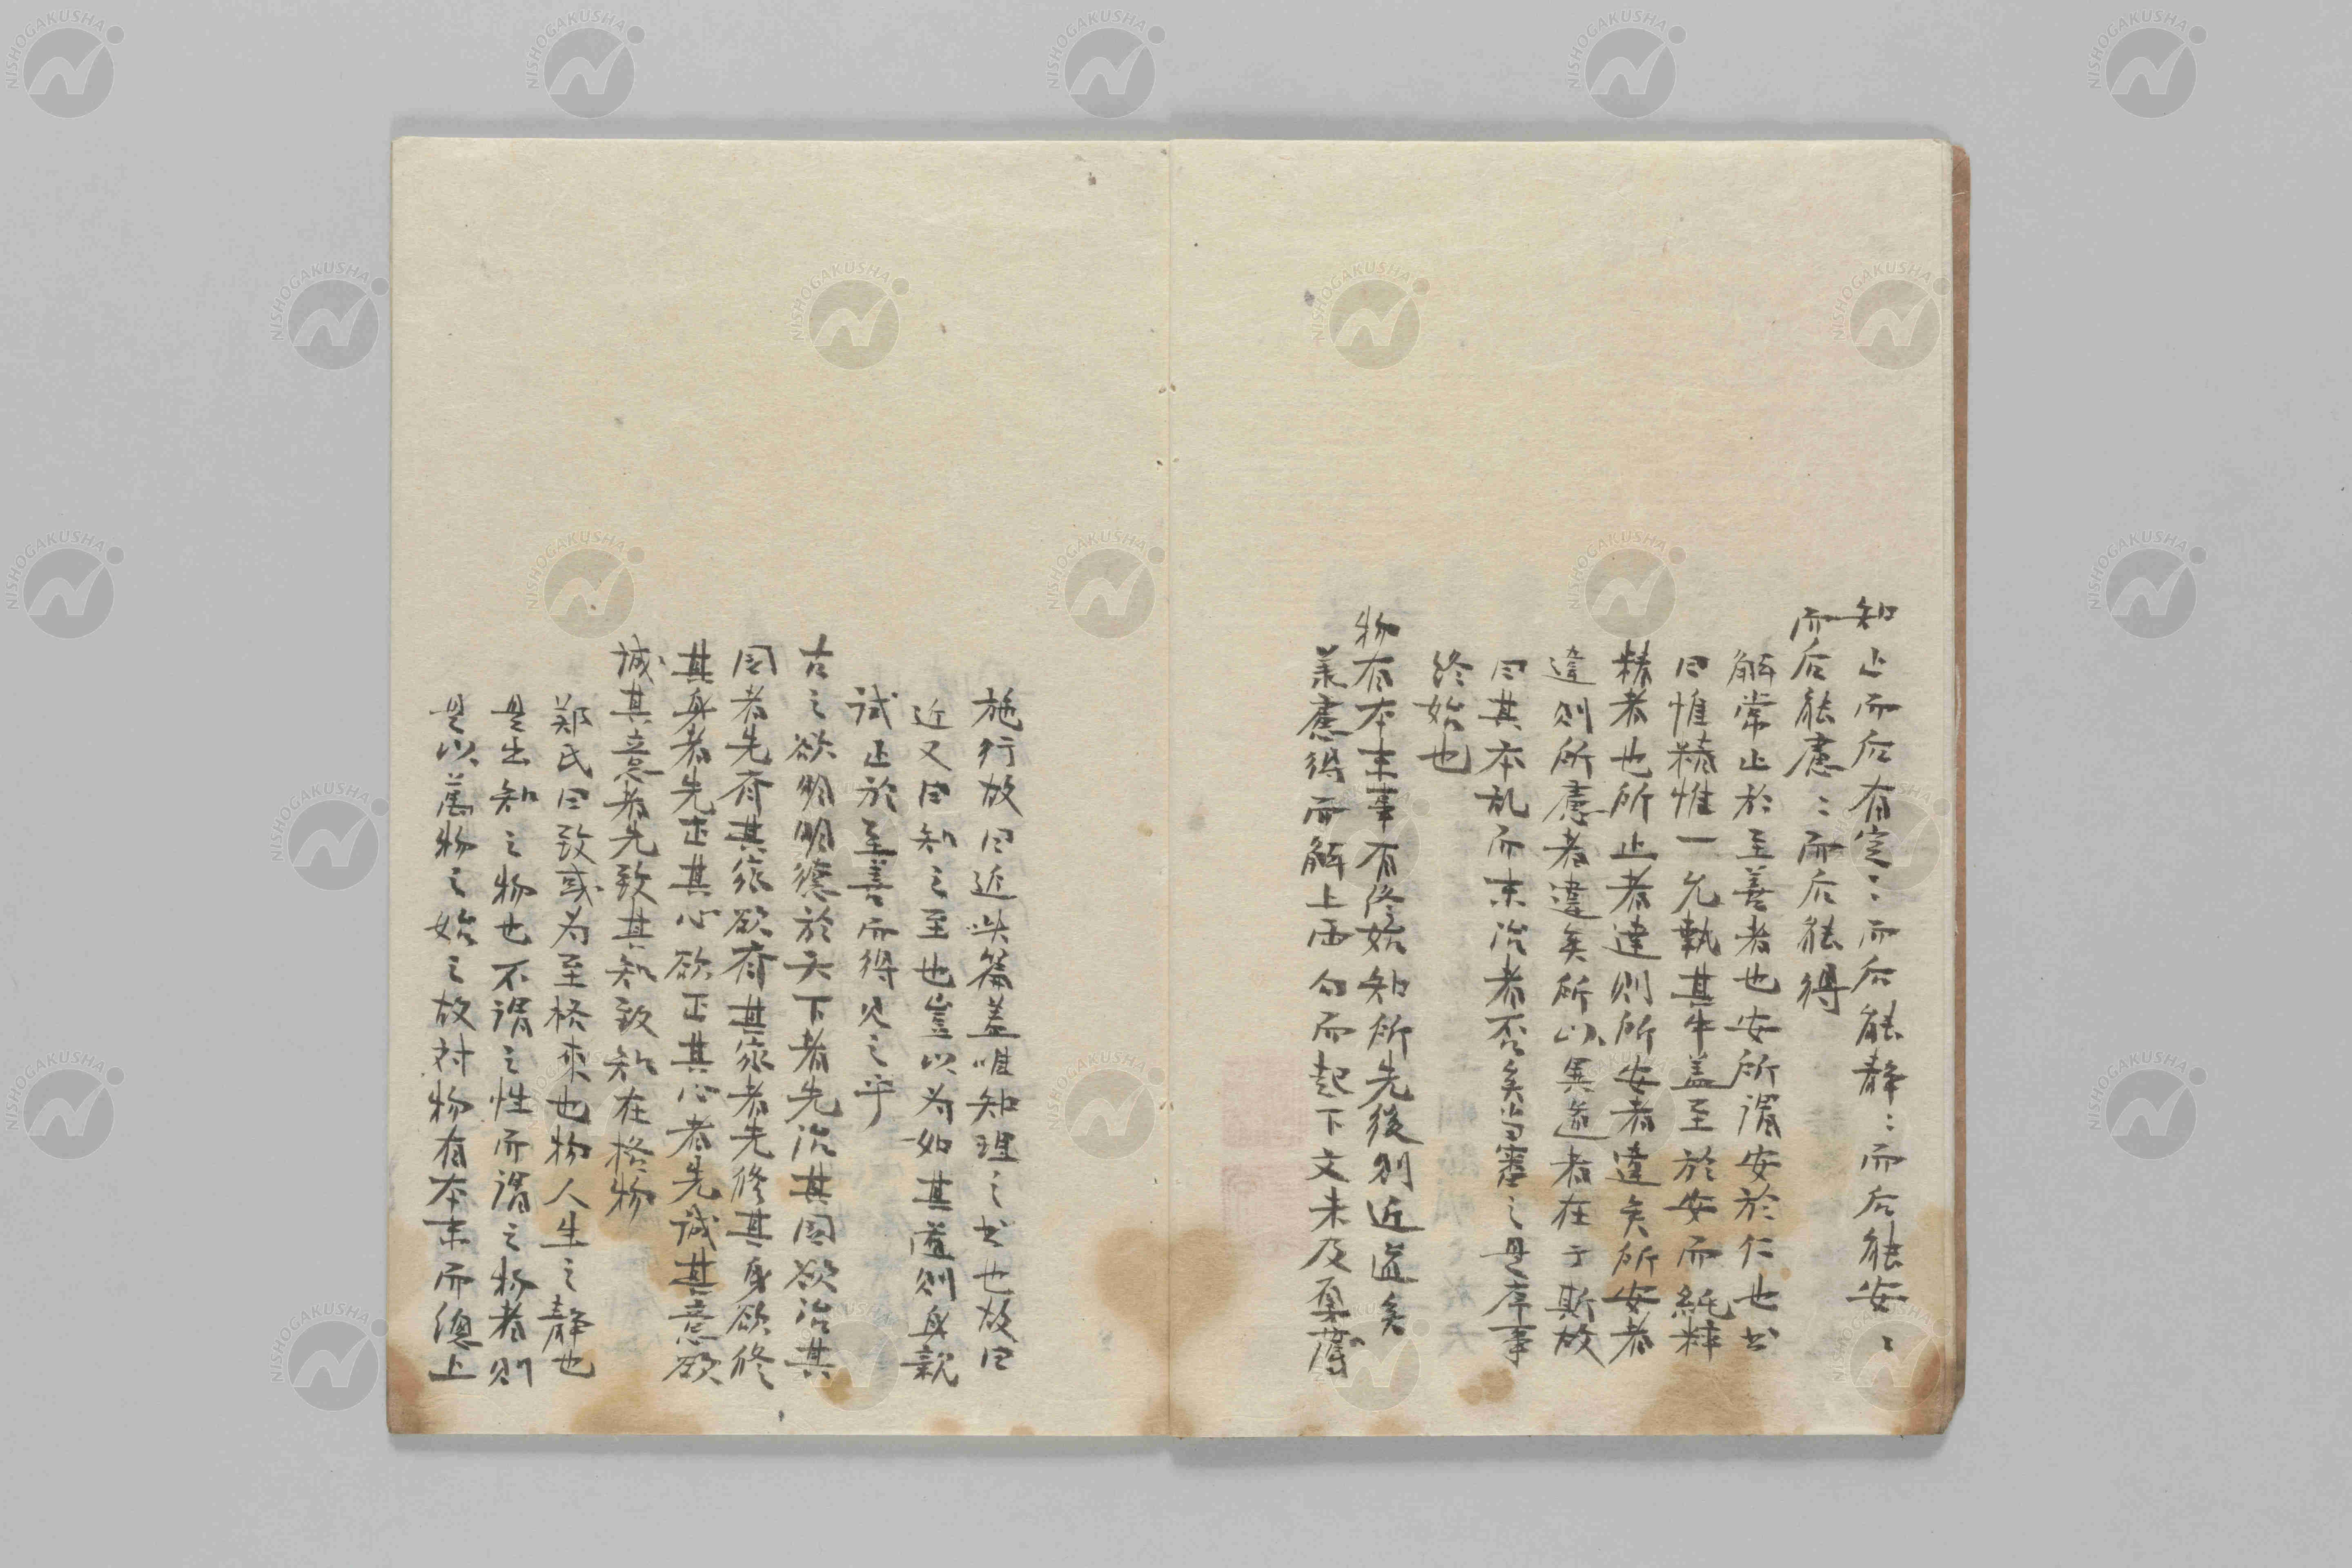 知止而后有定〻而后能静〻而后能安〻
而后能慮〻而后能得
解常止於至善者也安所謂安於仁也书
曰惟精惟一允執其中盖至於安而純粋
精者也所止者違則所安者違矣所安者
違則所慮者違矣所以異道者在于斯故
曰其本乱而末治者否矣当審之毋序事
終始也
物有本末事有終始知所先後則近道矣
兼慮得而解上両句而起下文未及
施行故曰近此篇盖唯知理之书也故曰
近又曰知之至也豈以为如其道則身親
試止於至善而得父之乎
古之欲明明德於天下者先治其国欲治其
国者先齊其家欲齊其家者先修其身欲修
其身者先正其心欲正其心者先誠其意欲
誠其意者先致其知致知在格物
鄭氏曰致或为至格來也物人生之静也
是出知之物也不謂之性而謂之物者則
是以萬物之始之故対物有本末而總上